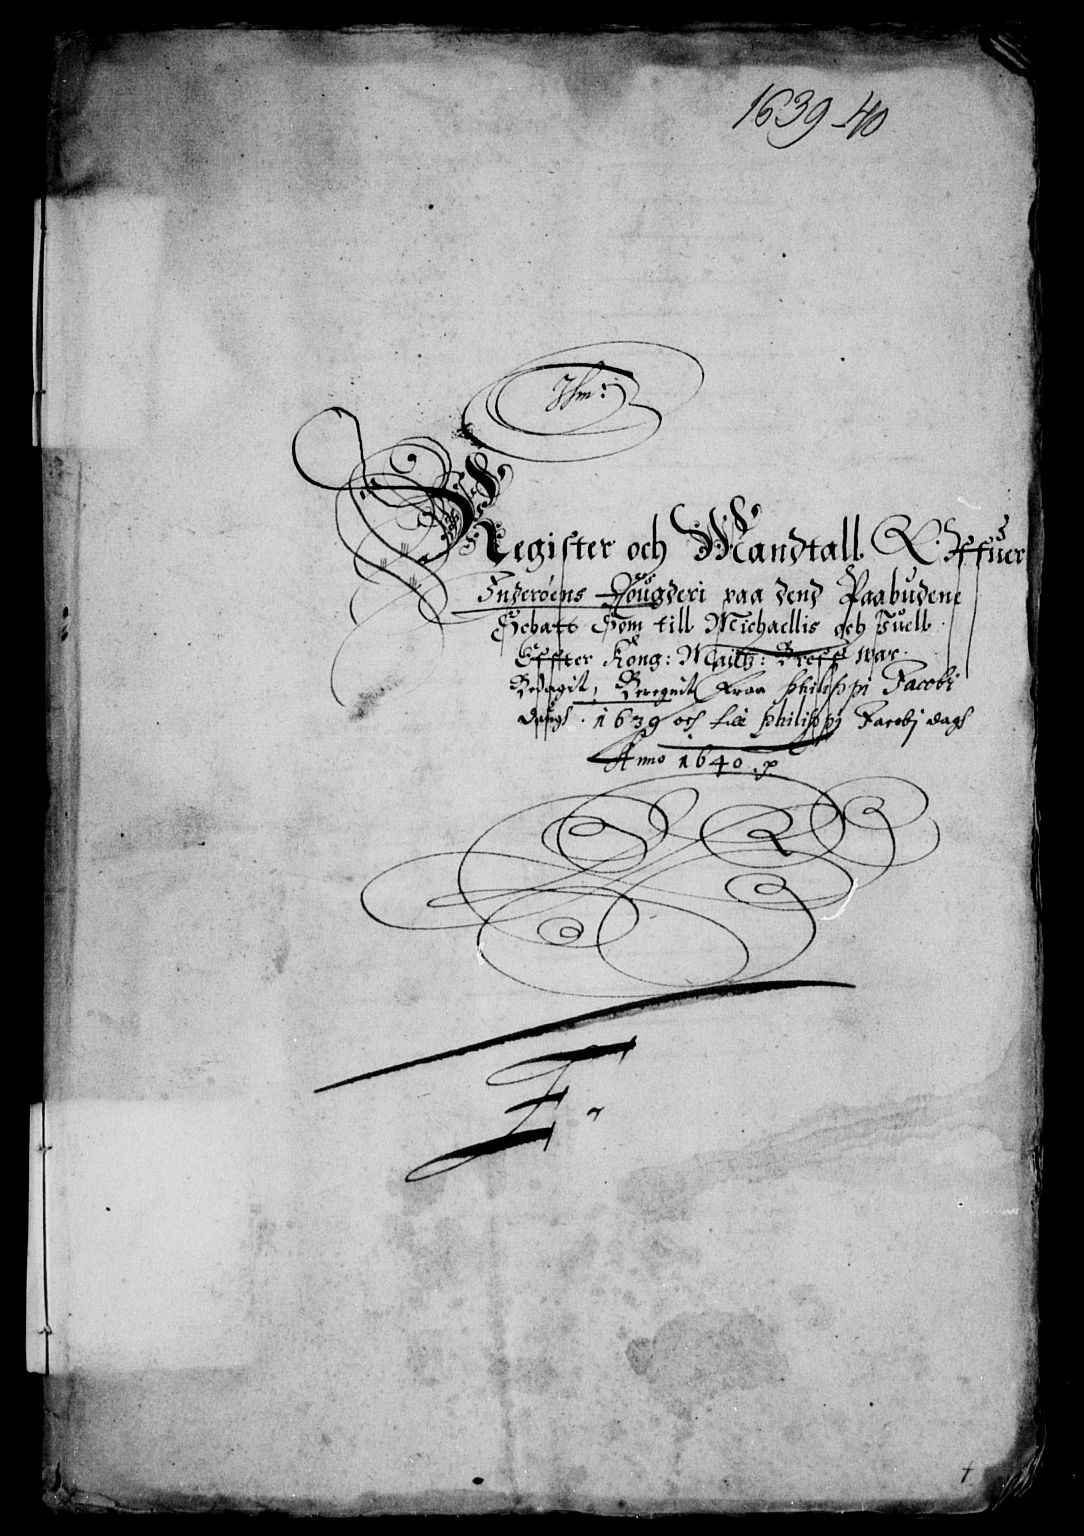 1639-40
Jhm:
Register och Mandtall Offuer
Inderøens Fougderi paa dend Paabudene
Schatt Som till Michaellis och Juell
Effter Kong: Maitz: Breff war
Bedagit, Beregnit Fraa philippi Jacobi
dags. 1639 och till philippi Jacobi dags
Anno 1640